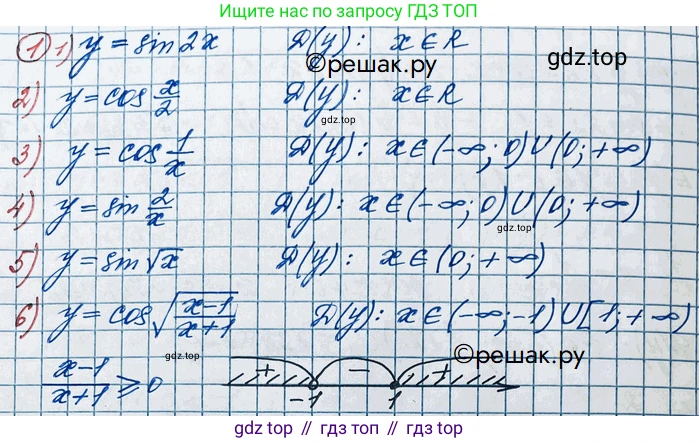 Ищите нас по запросу ГДЗ ТОП
① 1) y = sin 2x D(y): x ∈ R
gdz.top
©решак.ру
2) y = cos x/2 D(y): x ∈ R
gdz.top
3) y = cos 1/x D(y): x ∈ (-∞; 0) ∪ (0; +∞)
gdz.top
4) y = sin 2/x D(y): x ∈ (-∞; 0) ∪ (0; +∞)
gdz.top
5) y = sin √x D(y): x ∈ (0; +∞)
gdz.top
6) y = cos √((x-1)/(x+1)) D(y): x ∈ (-∞; -1) ∪ [1; +∞)
©решак.ру
gdz.top
(x-1)/(x+1) ≥ 0 + − +
-1 1
gdz.top // gdz.top // gdz.top